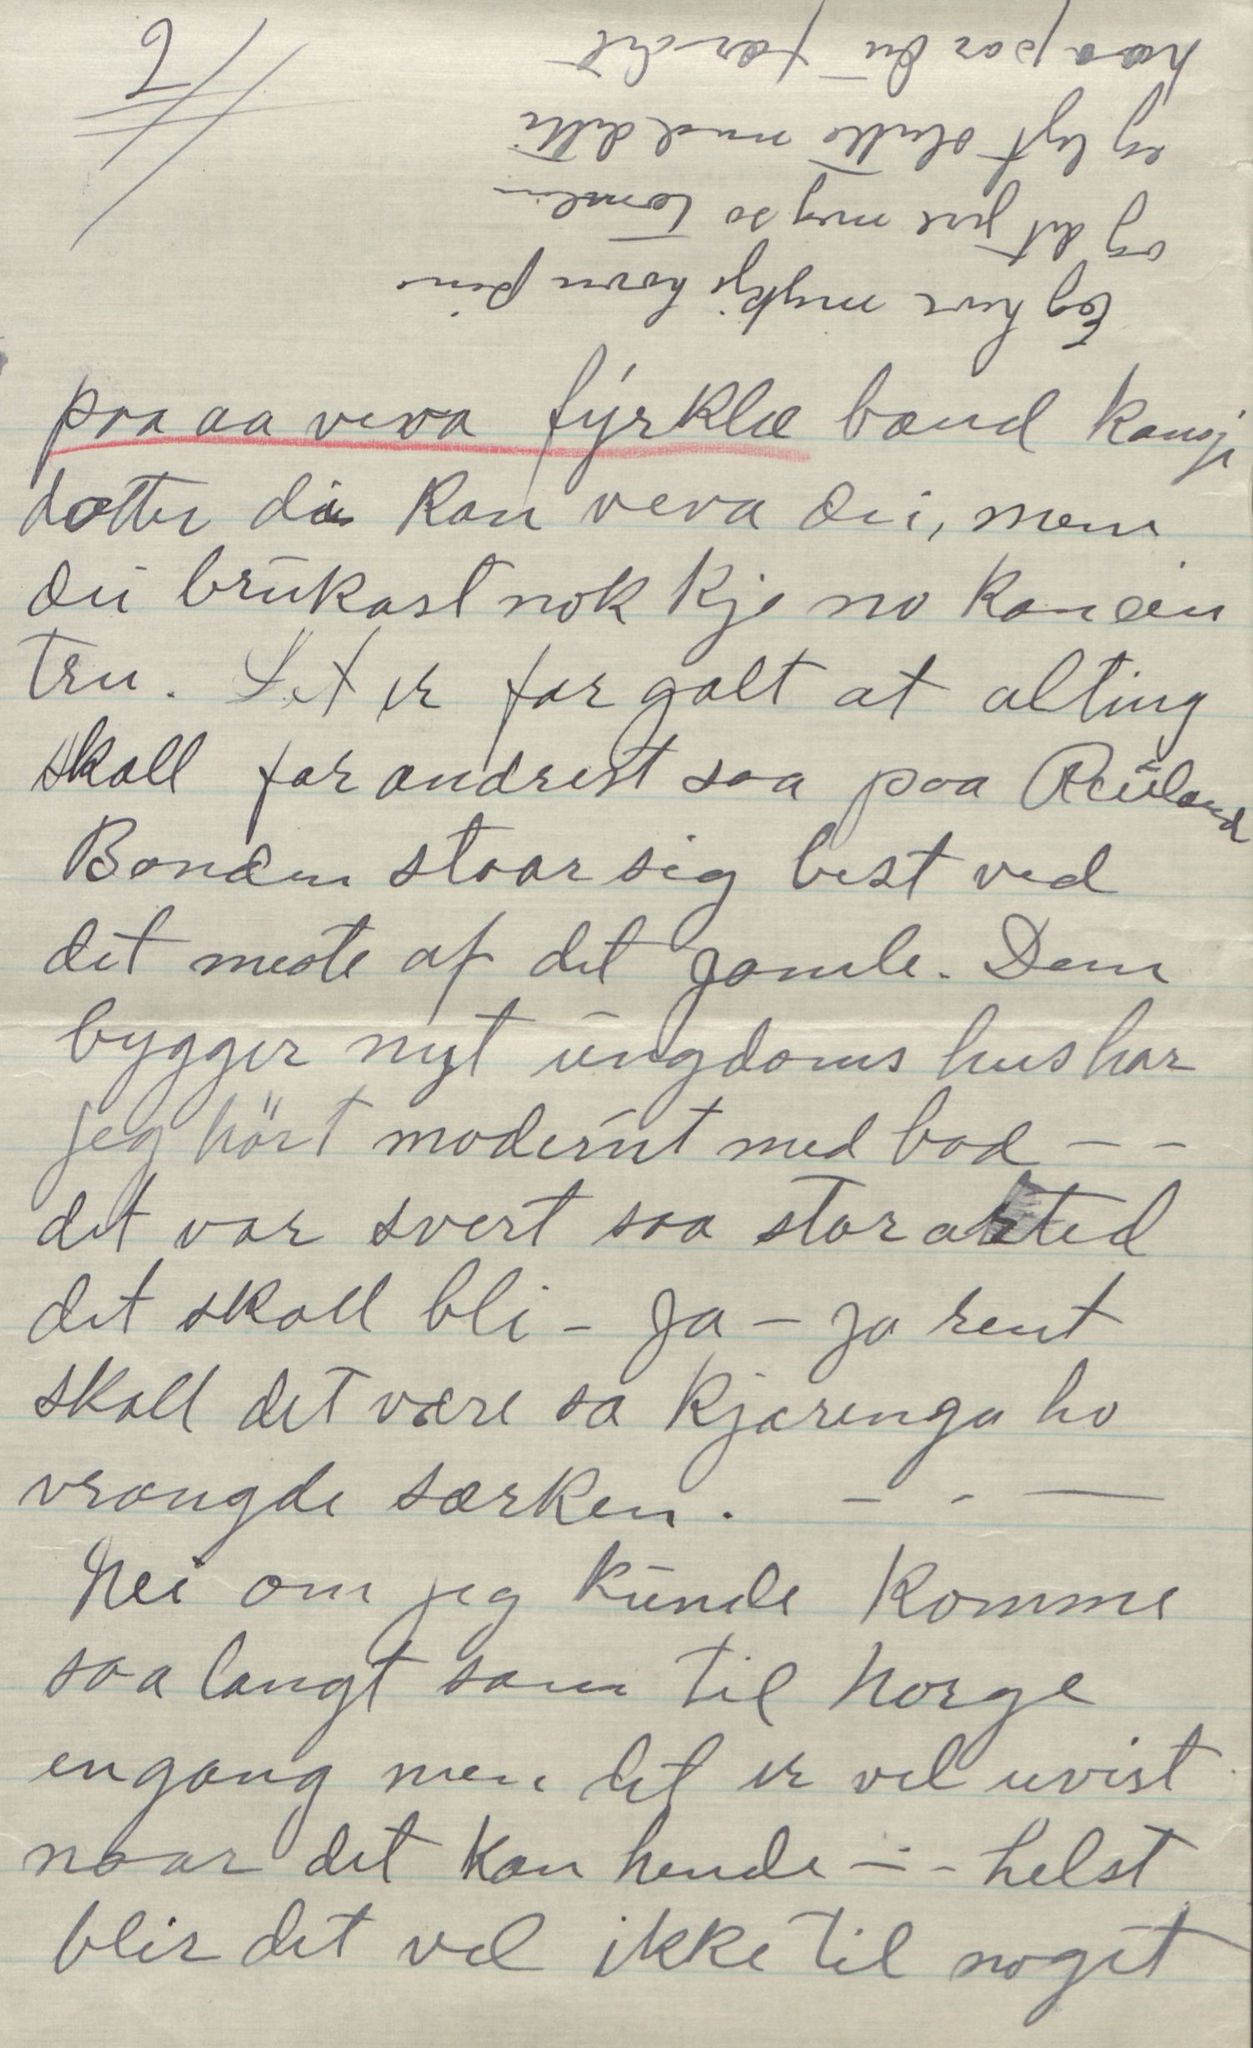 6
Eg hev mykje hovu pine
og det gere meg so tomlen
eg lyt slutte med dette
haapar du fær det
paa aa veva fýrklæ band kansje
dotter di kan veva dei, men
dei brukast nok kje no kan ein
tru. Det er for galt at alting
skall forandrest saa paa Rauland
Bonden staar sig best ved
det meste af det gamle. Dem
bygger nyt ungdoms hus har
jeg hört modernt med bad - -
det var svert saa storarted
det skall bli - ja - ja rent
skall det være sa kjærenga ho
vrangde særken. - - -
Nei om jeg kunde komme
saa langt som til Norge
engang men det er vel uvist
naar det kan hende - - - helst
blir det vel ikke til noget